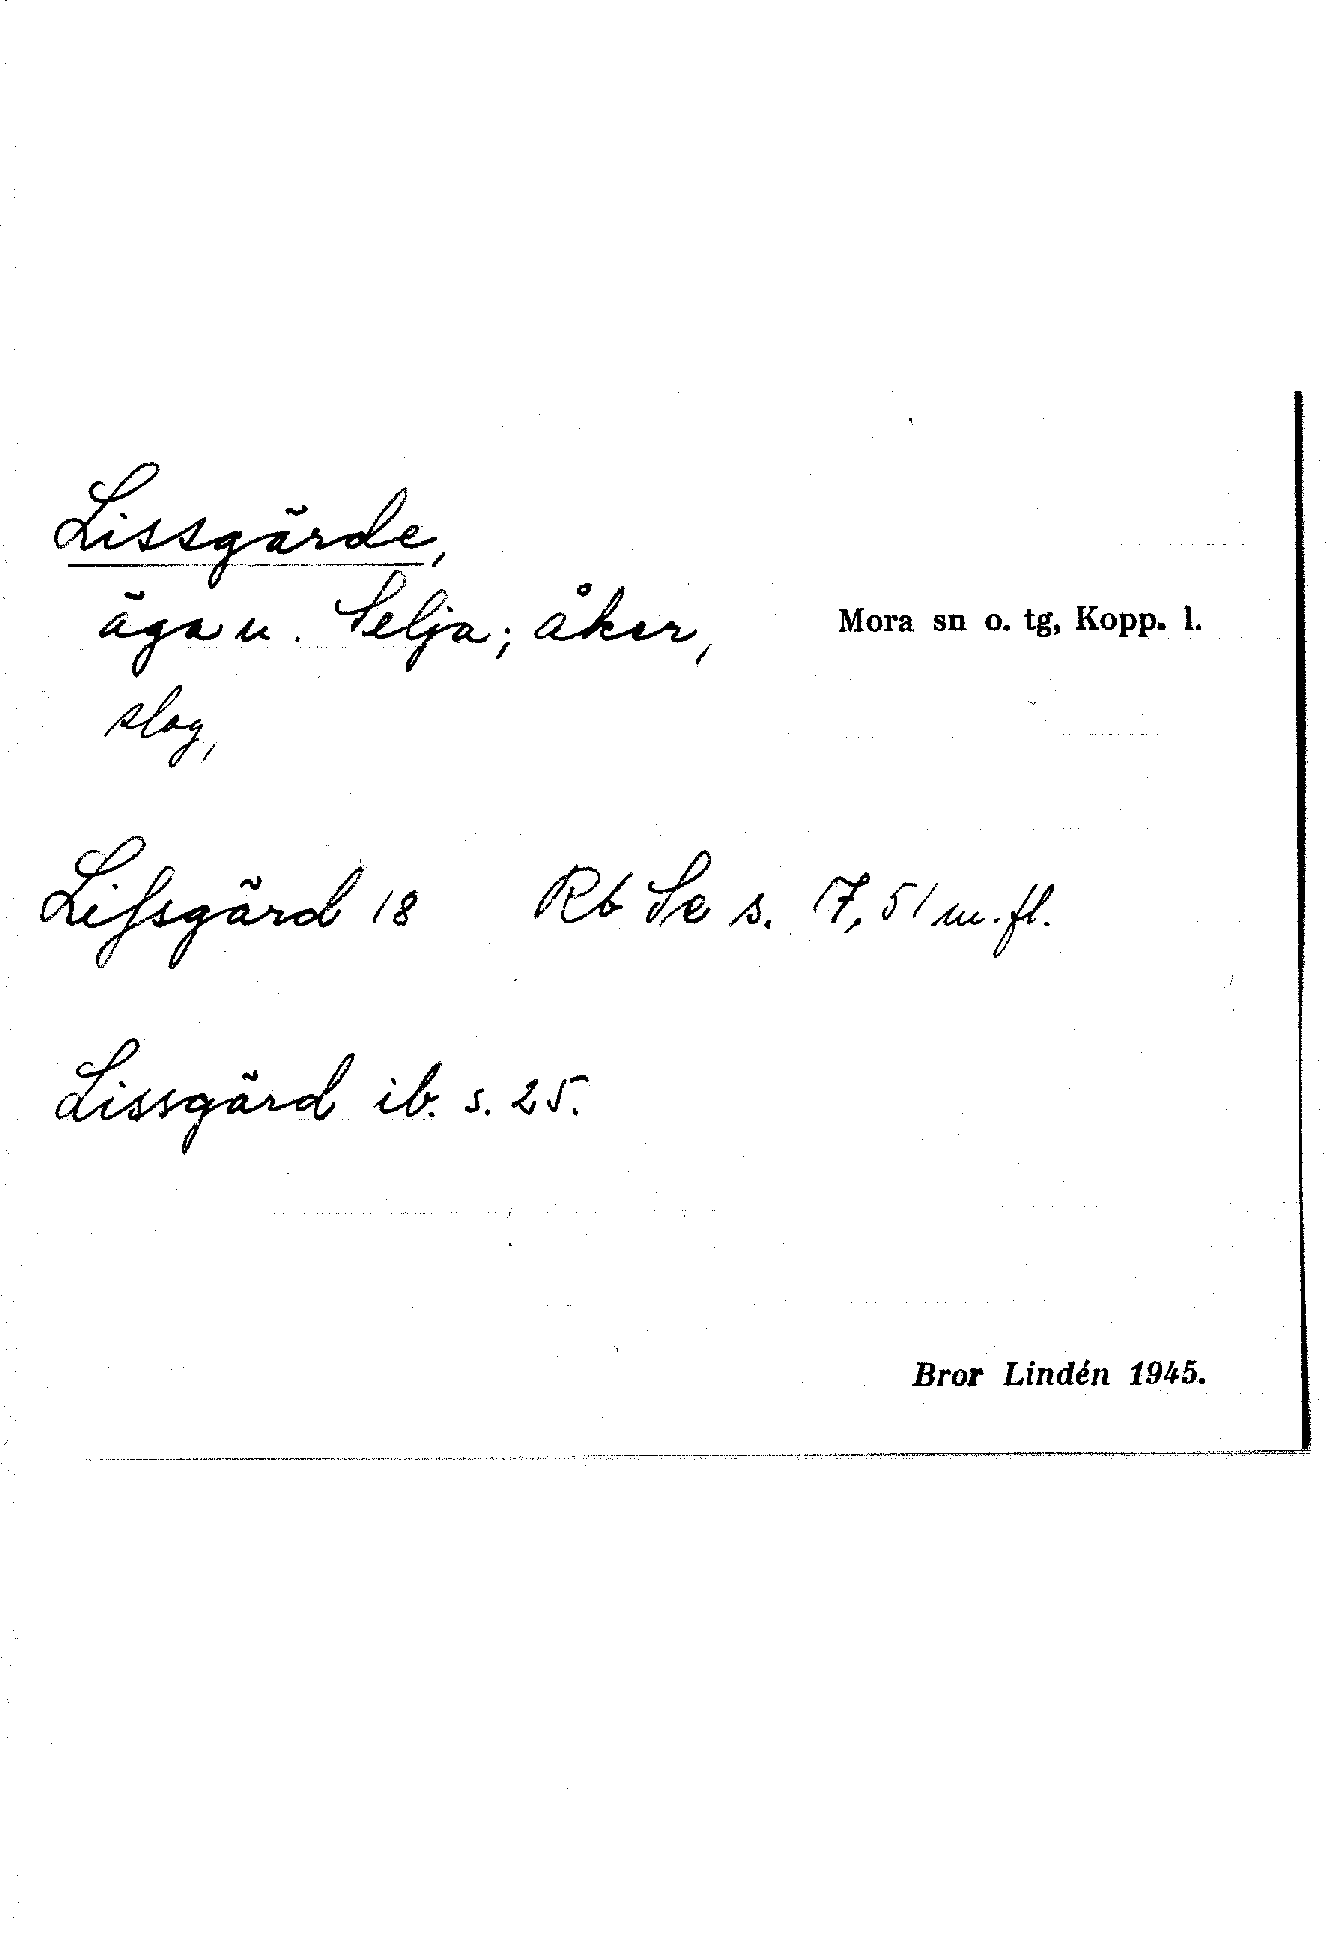 Lissgärde,
äga u. Selja; åker,
Mora sn o. tg, Kopp. l.
slog,
Liſsgärd 18 Rb Se s. 17, 51 m. fl.
Lissgärd ib. s. 25.
Bror Lindén 1945.